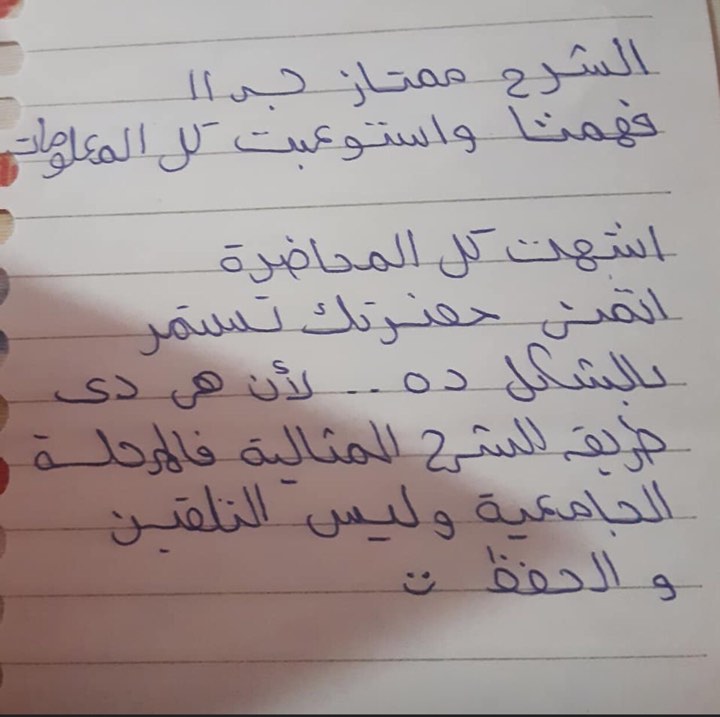 الشرح ممتاز جداا
فهمتا واستوعبت كل المعلومات
انتهت كل المحاضرة
اتمنى حضرتك تستمر
بالشكل ده .. لأن هى دى
طريقه للشرح المثالية فالمرحلة
الجامعية وليس التلقين
و الحفظ ت